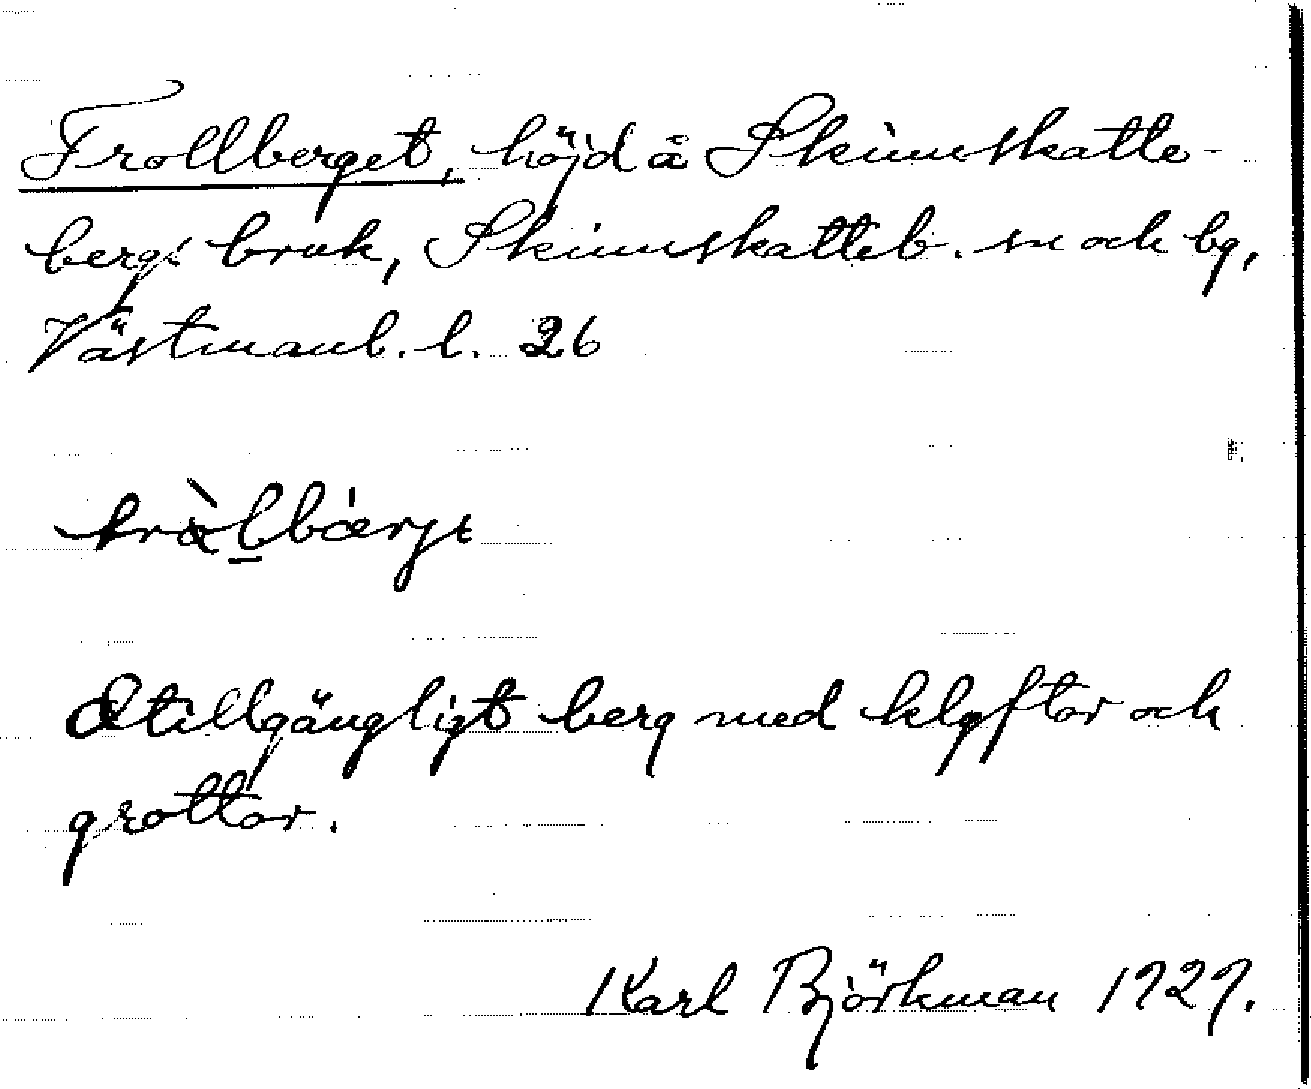 Trollberget, höjd å Skinnskatte-
bergs bruk, Skinnskatteb. sn och bg,
Västmanl. l. 26
tròlbærjɛ
Otillgängligt berg med klyftor och
grottor.
Karl Björkman 1929.